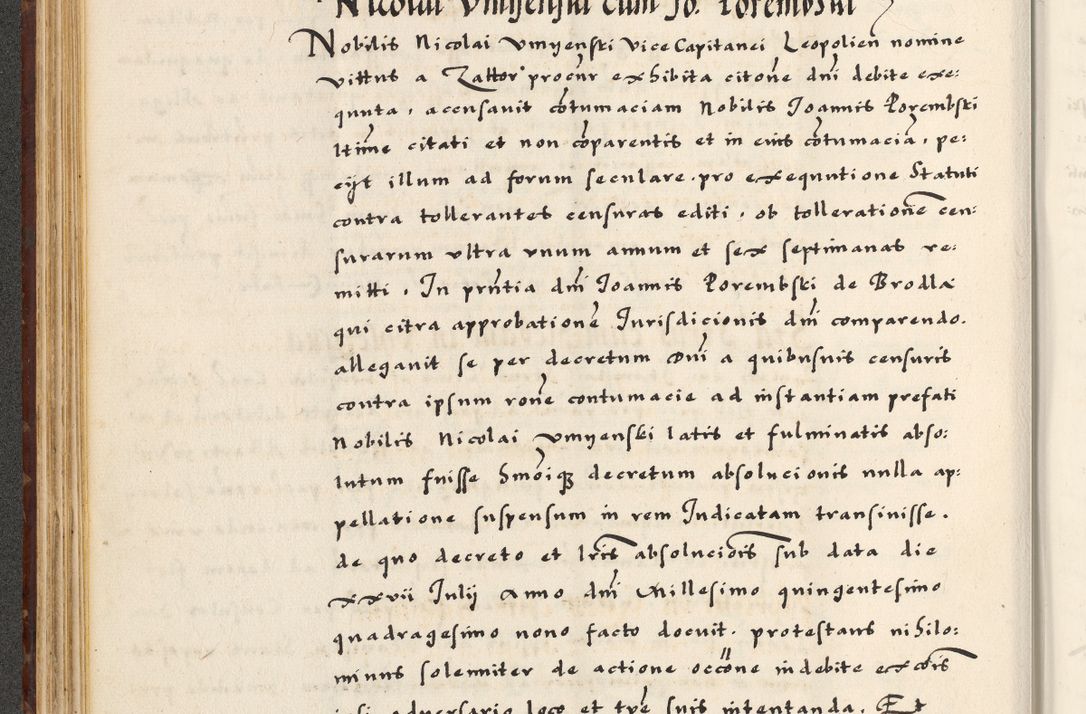 Nicolai Vmyenski cum Jo. Porembski
Nobilis Nicolai vmyenski vice Capitanei Leopolien̄ nomine
vittus a Zattor procūr exhibita citone dnī debite exe:
quuta, accusavit cōtumaciam Nobilis Joannis Porembski
ltime citati et non cōparentis et in eius cōtumaciā, pe:
cijt illum ad forum seculare. pro exequutione Statuti
contra tollerantes censuras editi, ob tollerationē cen:
surarum vltra vnum annum et sex septimanas re:
mitti. In prn̄tia dnī Joannis Porembski de Brodla
qui citra approbatione Jurisdicionis dnī comparendo.
allegavit se per decretum Dnī a quibusuis censuris
contra ipsum rone contumacie ad instantiam prefati
Nobilis Nicolai vmyenski latis et fulminatis abso:
lutum fuisse Hmōiqz decretum absolucionis nulla ap:
pellatione suspensum in rem Judicatam transiuisse.
de quo decreto et lr̄is absolucīois sub data die
xxvii Julij Anno dnī Millesimo quingentesimo
quadragesimo nono facto docuit. protestans nihilo:
minus solemniter de actione occōne indebite excōis
ipsi adversario loco et tpē suis intentanda. Et